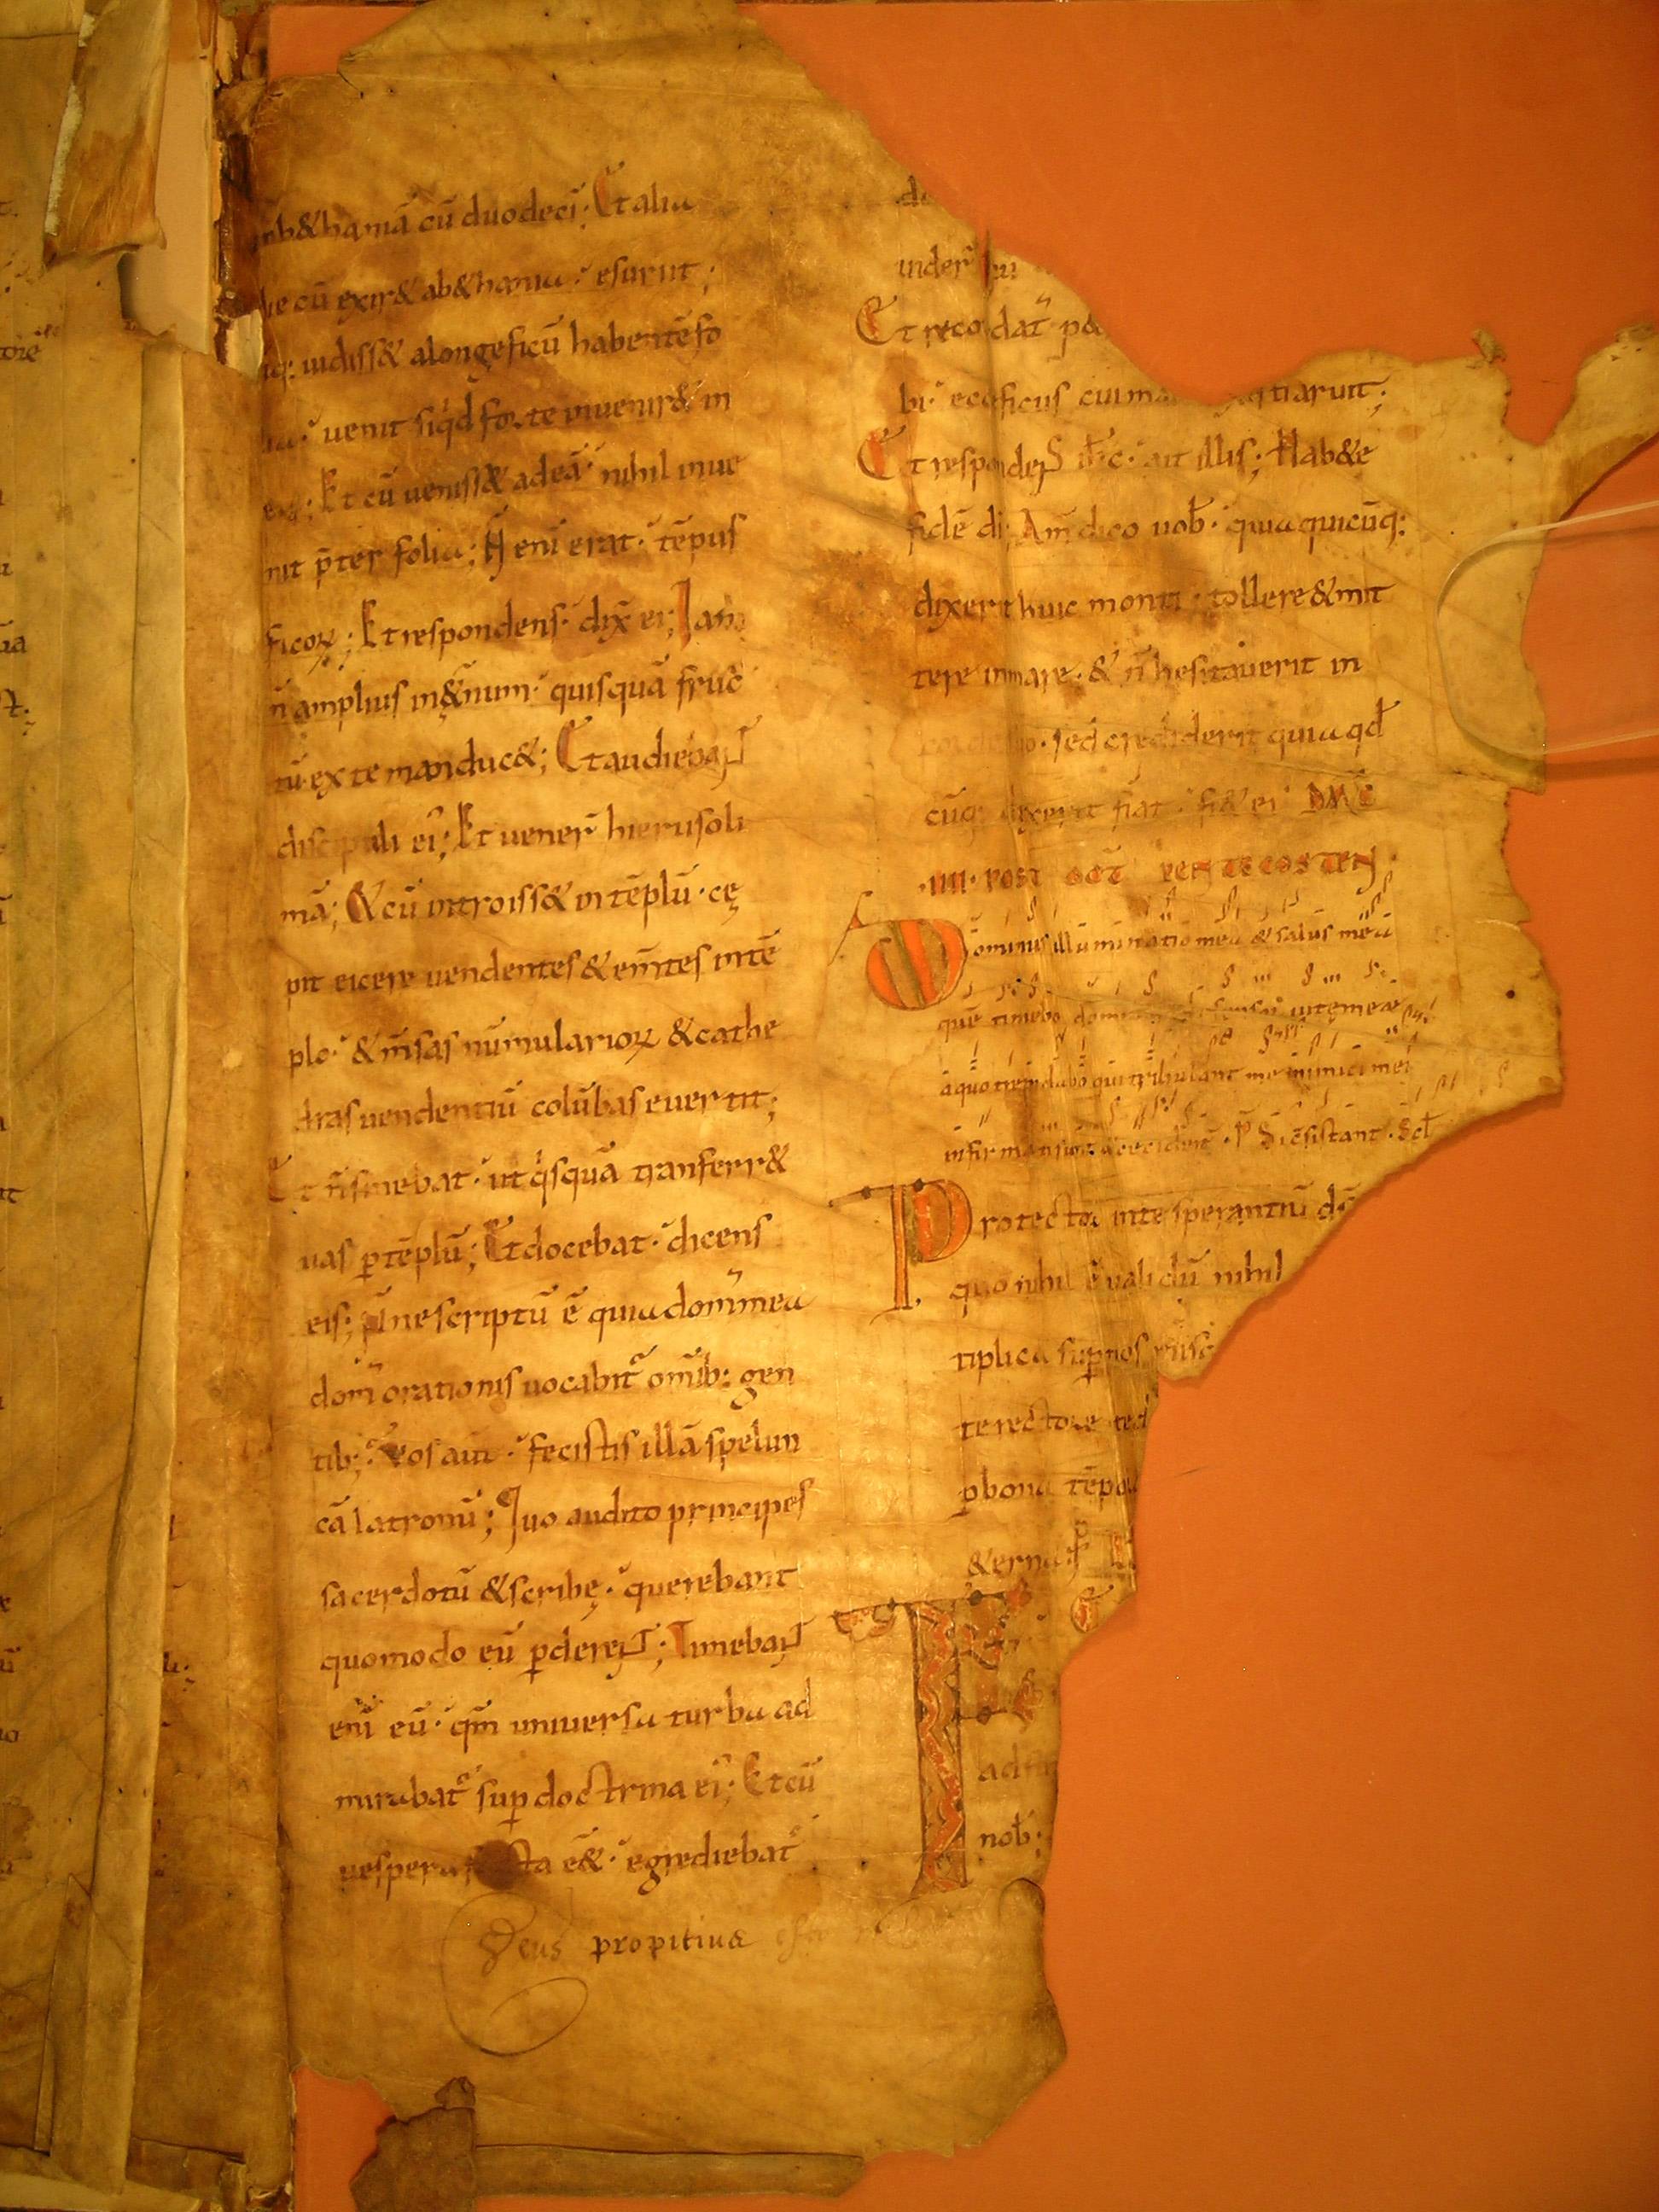 b&hania cū duodecī; Et alia
die cū exir& ab&hania · esuriit;
q: uidiss& a longe ficū habentē fo
lia · uenit si qd forte inuenir& in
ea; Et cū ueniss& ad eā · nihil inue
nit p̄ter folia; N̄ eni erat · tēpus
ficoꝝ; Et respondens · dix̄ ei; Iam
n̄ amplius in &ernum · quisquā fruc
tū ex te manduc&; Et audiebant
discipuli ei᾽; Et uener̄ hierusoli
mā; & cū introiss& in tēplū · cę
pit eicere uendentes & em̄tes in tē
plo · & m̄sas nūmularioꝝ & cathe
dras uendentiū colūbas euertit;
Et n̄ sinebat · ut qisquā tranferr&
uas ꝑ tēplū; Et docebat · dicens
eis; Nne scriptū ē quia dom᾽ mea
dom᾽ orationis uocabit᾽ omīb: gen
tib; Vos aut · fecistis illā spelun
cā latronū; Quo audito principes
sacerdotū & scribę · querebant
quomodo eū ꝑderent; Timebant
eni eū · qm̄ uniuersa turba ad
mirabat᾽ suꝑ doctrina ei᾽; Et cū
uespera facta eē& · egrediebat᾽
Deus propitius
uider̄
Et recordat᾽ pe
bi · ecce ficus cui ma
Et respondens ih̄c · ait illis; Hab&e
fidē di; Am̄ dico uob̄ · quia quicūq:
dixerit huic monti · tollere & mit
tere in mare · & n̄ hesitauerit in
corde suo · sed crediderit quia qd
cūq: dixerit fiat · fi& ei DN̄C
·IIII· POST OCT̄ PENTECOSTEN·
A Dominus illuminatio mea & salus mea
quē timebo dominus defensor uitę meae
a quo trepidabo qui tribulant me inimici mei
infirmati sunt & ceciderunt · P̄S Si cōsistant
Protector in te sperantiū ds̄
quo nihil ē ualidū nihil
tiplica suꝑ nos misc
te rectore te d
ꝑ bona tēpo
&erna ·
nob̄ ·